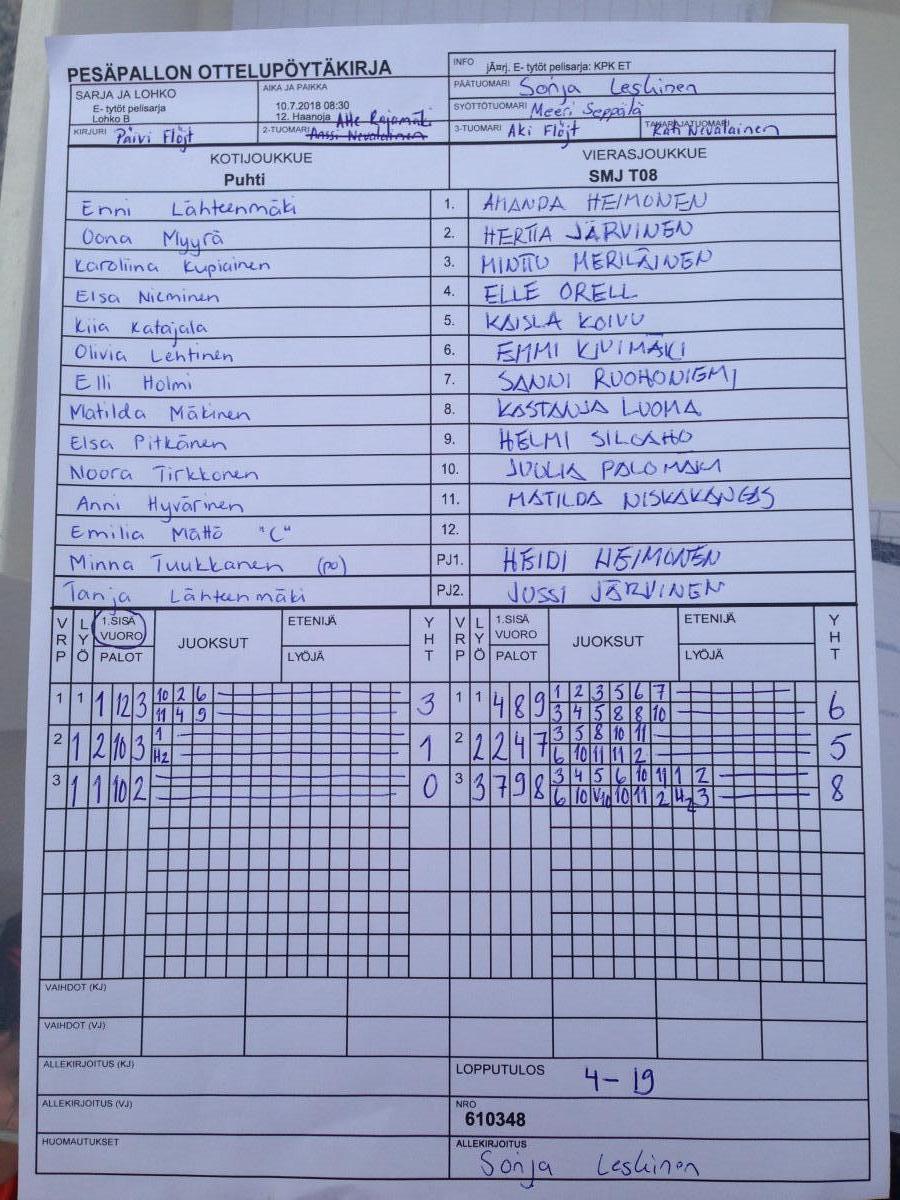 PESÄPALLON OTTELUPÖYTÄKIRJA
INFO jÃ¤rj. E- tytöt pelisarja: KPK ET
SARJA JA LOHKO
E- tytöt pelisarja
Lohko B
AIKA JA PAIKKA
10.7.2018 08:30
12. Haanoja
PÄÄTUOMARI Sonja Leskinen
SYÖTTÖTUOMARI Meeri Seppälä
KIRJURI Päivi Flöjt
2-TUOMARI Anssi Nevalainen Atte Rajamäki
3-TUOMARI Aki Flöjt
TAKARAJATUOMARI Kati Nevalainen
KOTIJOUKKUE
Puhti
VIERASJOUKKUE
SMJ T08
Enni Lähteenmäki 1. AMANDA HEIMONEN
Oona Myyrä 2. HERTTA JÄRVINEN
Karoliina Kupiainen 3. MINTTU MERILÄINEN
Elsa Nieminen 4. ELLE ORELL
Kiia Katajala 5. KAISLA KOIVU
Olivia Lehtinen 6. EMMI KIVIMÄKI
Elli Holmi 7. SANNI RUOHONIEMI
Matilda Mäkinen 8. KASTANJA LUOMA
Elsa Pitkänen 9. HELMI
Noora Tirkkonen 10. PALOMÄKI
Anni Hyvärinen 11. MATILDA NISKAKANGAS
Emilia Mättö "C" 12.
Minna Tuukkanen (po) PJ1. HEIDI HEIMONEN
Tanja Lähteenmäki PJ2. JUSSI JÄRVINEN
VRP LYÖ 1.SISÄ VUORO PALOT JUOKSUT ETENIJÄ LYÖJÄ YHT VRP LYÖ 1.SISÄ VUORO PALOT JUOKSUT ETENIJÄ LYÖJÄ YHT
1 1 1 12 3 10 2 6 3 1 1 4 8 9 1 2 3 5 6 7 6
11 4 9 3 4 5 8 8 10
2 1 2 10 3 1 1 2 2 2 4 7 3 5 8 10 11 5
H2 6 10 11 11 2
3 1 1 10 2 0 3 3 7 9 8 3 4 5 6 10 11 1 2 8
6 10 V10 10 11 2 H2 3
VAIHDOT (KJ)
VAIHDOT (VJ)
ALLEKIRJOITUS (KJ)
LOPPUTULOS 4-19
ALLEKIRJOITUS (VJ)
NRO
610348
HUOMAUTUKSET
ALLEKIRJOITUS
Sonja Leskinen